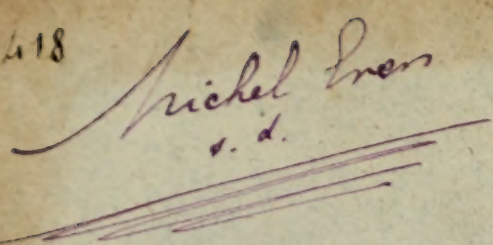 418
Michel Even
s. d.